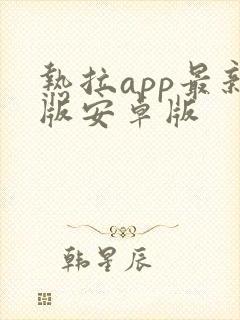 热拉app最新
版安卓版
韩星辰